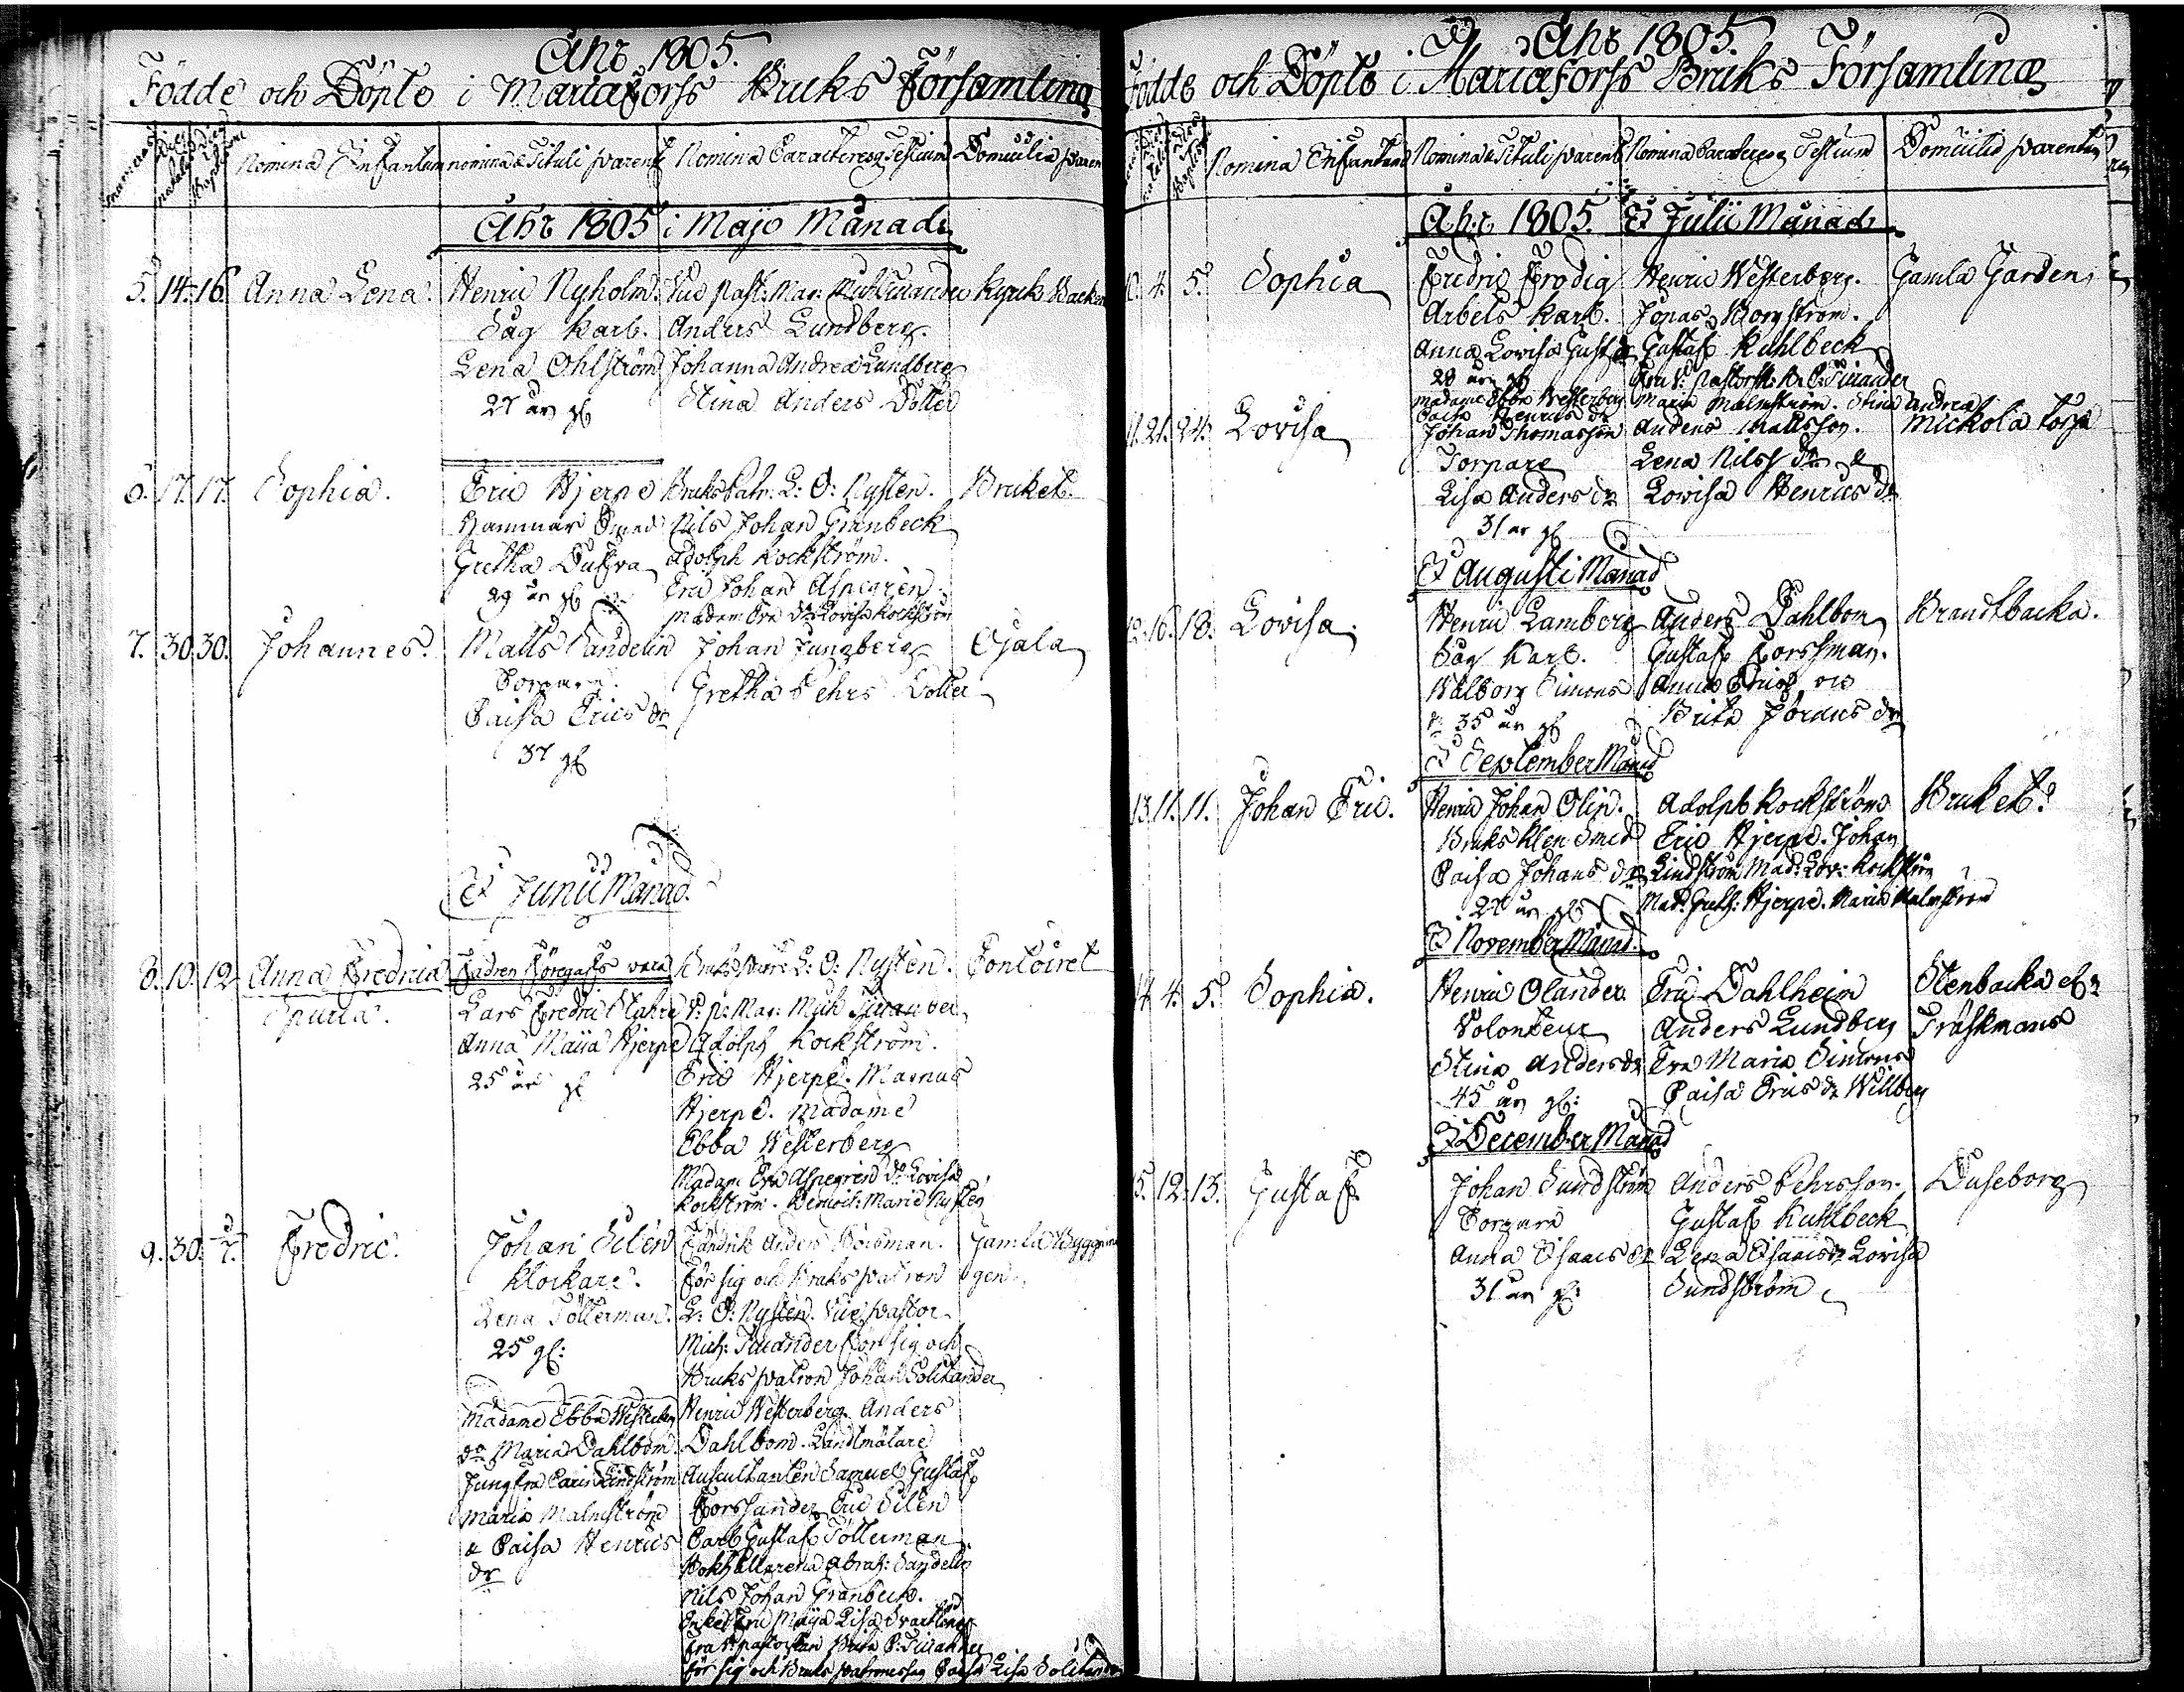 Åhr 1805.
Födde och Döpte i Mariæforss Bruks Församling
Nomina Infantum nomina & Tituli parent Nomina Caracteresq Testium Domicilia paren
Åhr 1805 i Majo Månad
5. 14. 16. Anna Lena. Henric Nyholm. Vice Past: Mag: Kyrck Backen
Såg Karl. Anders Lundberg.
Lena Ohlström Johanna Andrea Lundberg
27 år gl Stina Anders Dotter
6. 17. 17. Sophia. Eric Hjerpe Bruks Patr: L: O: Nystén. Bruket.
Hammar Smed Nils Johan Granbeck
Gretha Adolph Kockström.
29 år gl Eric Johan Aspegrén
Madam Eva Do Lovisa Kockström
7. 30. 30. Johannes. Matts Sandelin Johan Jungberg Ojala
Torpare. Gretha Pehrs Dotter
Caisa Erics dr
37 gl
I Junii Månad.
8. 10. 12 Anna Fredrica Fadren Föregafs vara Bruks Patr: L: O: Nystén. Contoiret
Spuria. Lars Fredric V: p: Mag: Mich Tuander
Anna Maija Hjerpe Adolph Kockström.
25 år gl Eric Hjerpe. Magnus
Hjerpe. Madame
Ebba Westerberg
Madam Eva Aspegrén Do Lovisa
Kockström. Demois: Maria Nystén
9. 30. 7. Fredric. Johan Silén Fändrik Anders Gamla Byggnin
Klockare. för sig och Bruks patron gen.
Lena Töllerman. L: O: Nystén. Vice pastor
25 gl: Mich: Tuander för sig och
Bruks patron Johan Solitander
Madame Ebba Westerberg Henric Westerberg. Anders
Do Maria Dahlbom. Dahlbom. Landtmätare
Jungfru Carin Lindström Auscultanten Samuel Gustaf
Maria Malmström Forssander Eric Silén
& Caisa Henrics Carl Gustaf Töllerman
dr Bokhållarena Abrah: Sandelin
Nils Johan Granbeck.
Enkefru Maija Lisa
Fru V: pastorskan
för sig och Bruks patronessan Caisa Lisa Solitander
Åhr 1805.
Födde och Döpte i Mariæforss Bruks Församling
Nomina Infantum Nomina & Tituli parent Nomina Caracteresq Testium Domicilia parentum
Åhr 1805. I Julii Månad
10. 4. 5. Sophia Fredric Frodig Henric Westerberg. Gamla Garden
Arbets Karl. Jonas Borgström.
Anna Lovisa Gustaf Kuhlbeck
28 år gl Fru V: Pastorsk: Tuander
Madame Ebba Westerberg Maria Malmström. Stina Andrea
Caisa Henrics dr
11. 21. 24. Lovisa Johan Thomasson Anders Mattsson. Mickola Torp
Torpare Lena Nilss dr &
Lisa Anders dr Lovisa Henrics dr
31 år gl
I Augusti Månad
12. 16. 18. Lovisa. Henric Lamberg Anders Dahlbom Brandtbacka.
Såg Karl. Gustaf Forssman.
Walborg Simons Anna
dr 35 år gl Brita Jörans dr
I September Månad
13. 11. 11. Johan Eric. Henric Johan Olin. Adolph Kockström Bruket.
Bruks Klen Smed Eric Hjerpe. Johan
Caisa Johans dr Lindström Mad: Lov: Kockström
27 år gl Mad: Greth: Hjerpe. Maria Malmström
I November Månad.
14. 4. 5. Sophia. Henric Olander. Eric Dahlheim Stenbacka elr
Volonteur Anders Lundberg Träskmans
Stina Anders dr Eva Maria Simons
45 år gl: Caisa Erics dr Willberg
I December Månad
15. 12. 13. Gustaf Johan Sundström Anders Pehrsson. Duseborg
Torpare Gustaf Kuhlbeck
Anna Isaacs dr Lena Isaacs dr Lovisa
31 år gl: Sundström